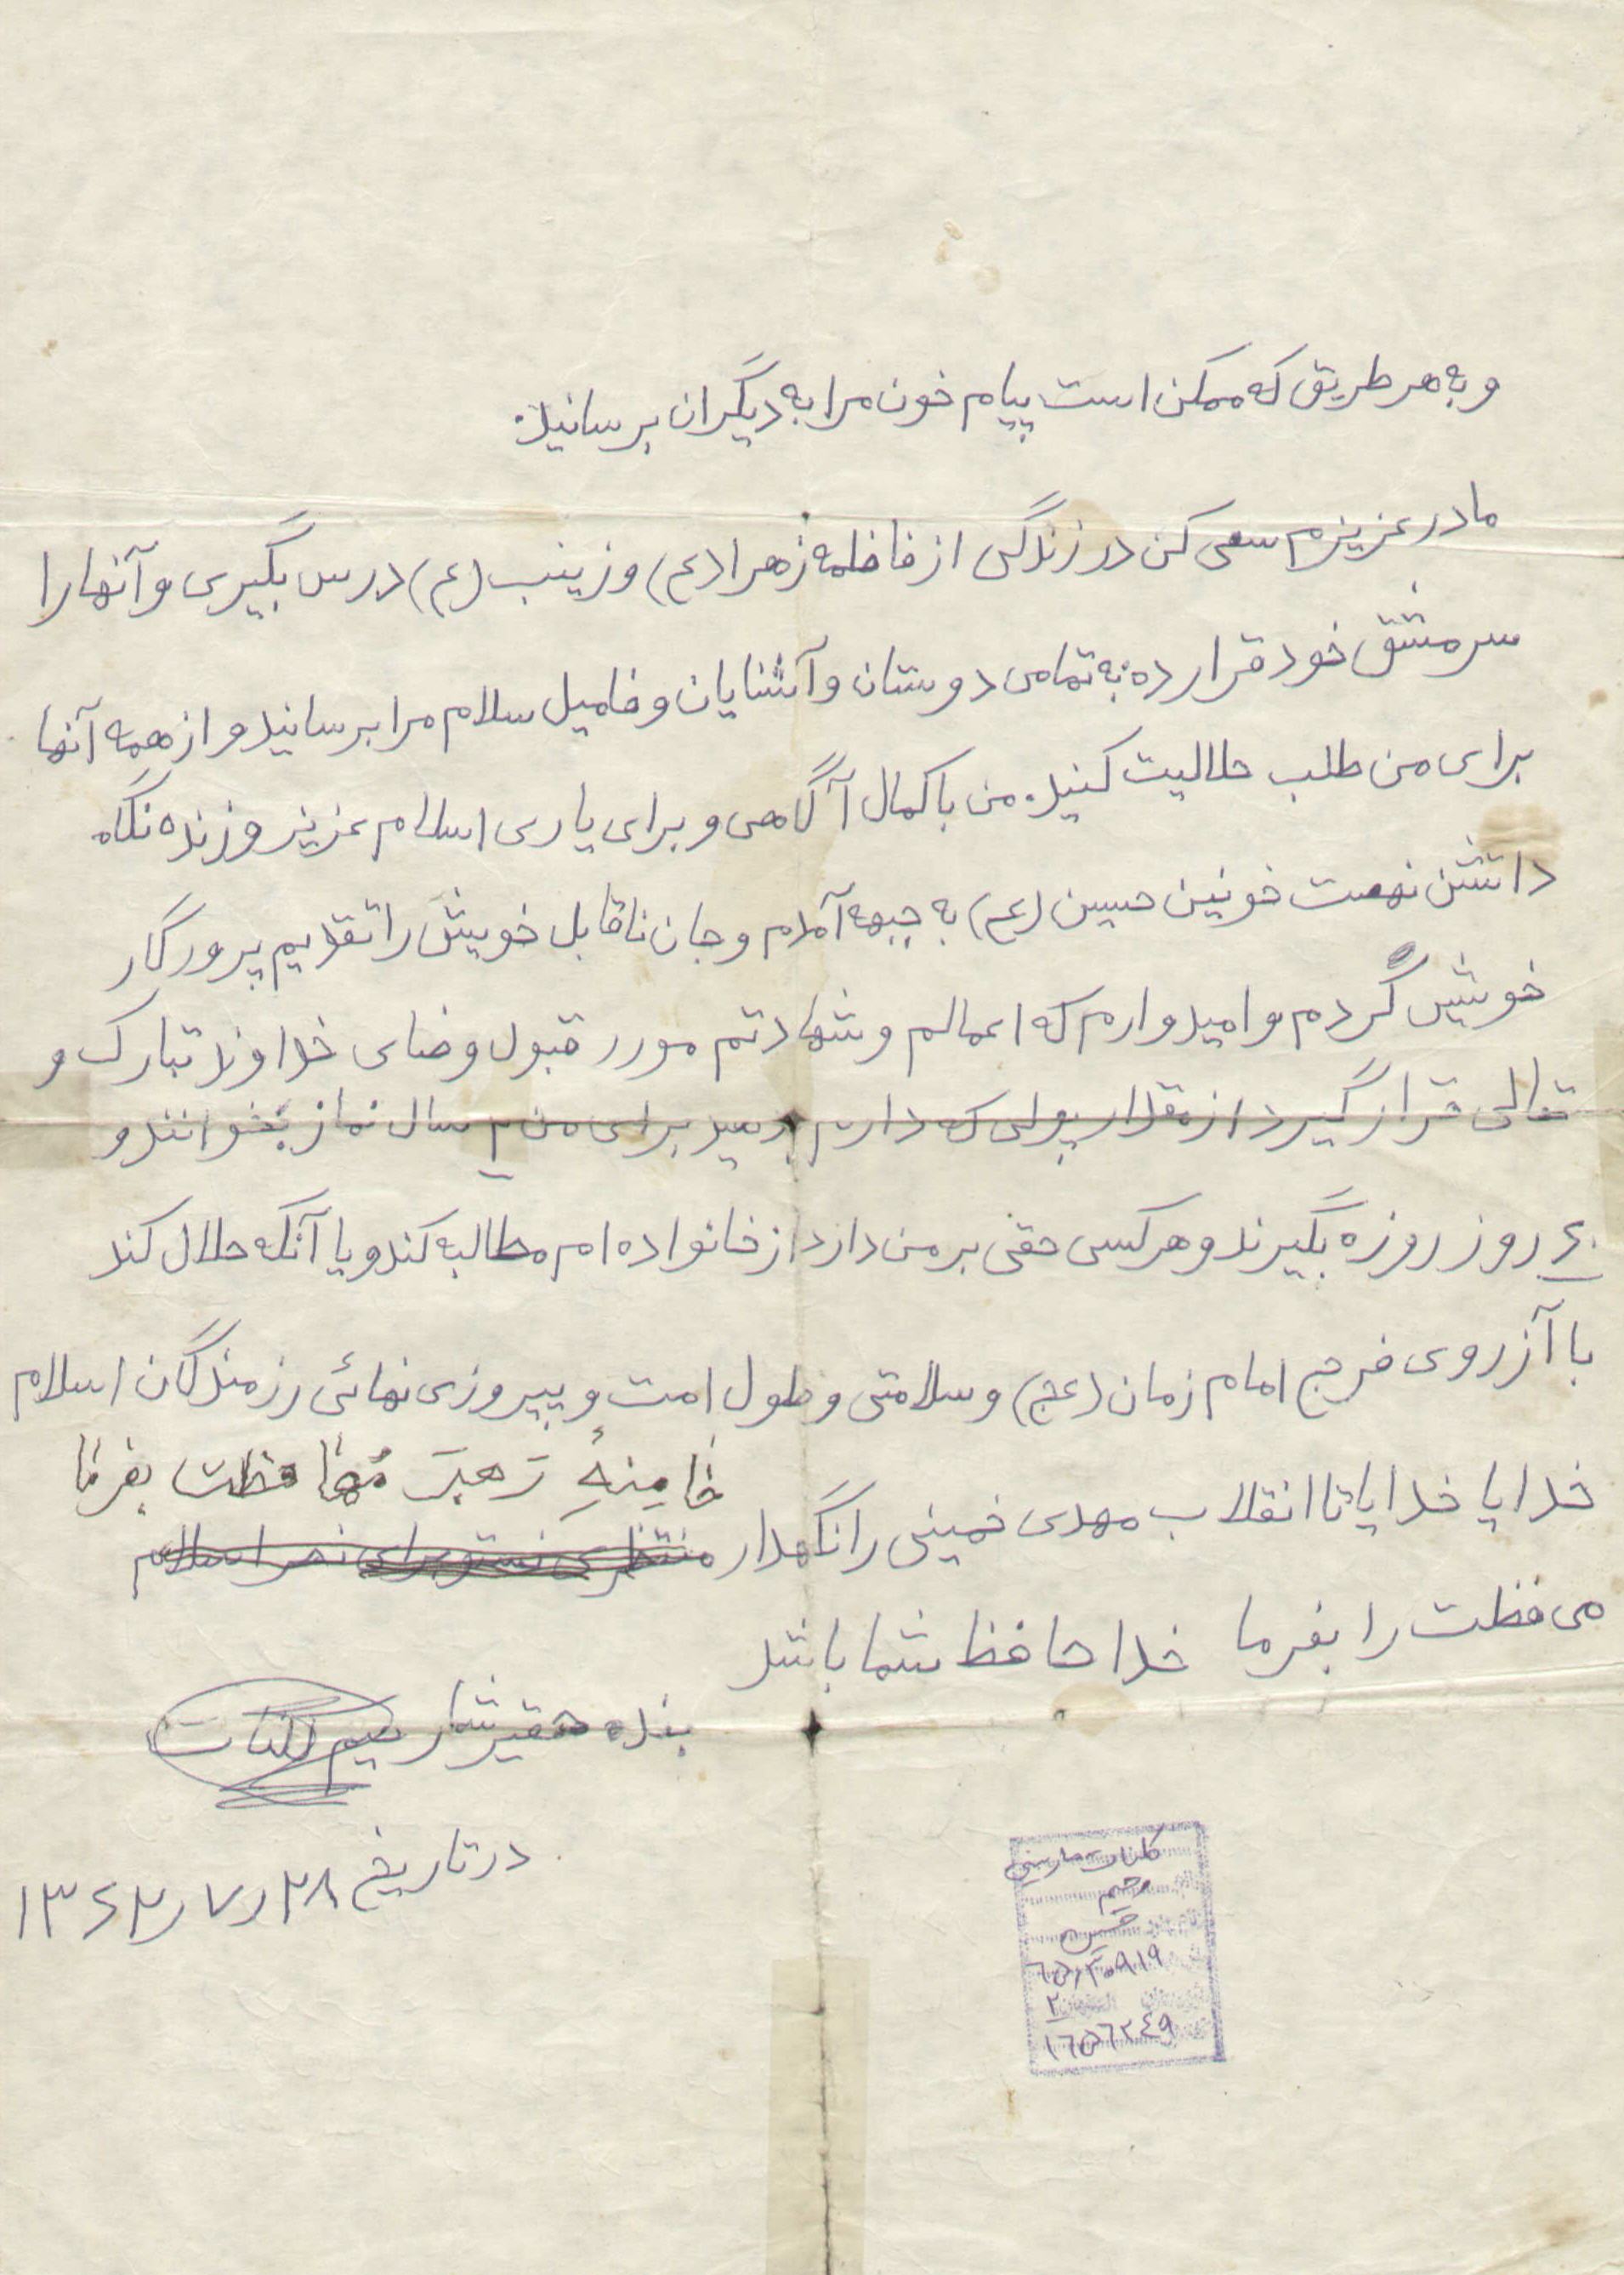 و به هر طریق که ممکن است پیام خون مرا به دیگران برسانید.
مادر عزیزم سعی کن در زندگی از فاطمه زهرا (ع) و زینب (ع) درس بگیری و آنها را
سرمشق خود قرار ده به تمامی دوستان و آشنایان و فامیل سلام مرا برسانید و از همه آنها
برای من طلب حلالیت کنید. من با کمال آگاهی و برای یاری اسلام عزیز و زنده نگاه
داشتن نهضت خونین حسین (ع) به جبهه آمدم و جان ناقابل خویش را تقدیم پرورگار
خویش کردم و امیدوارم که اعمالم و شهادتم مورد قبول و رضای خداوند تبارک و
تعالی قرار گیرد از مقدار پولی که دارم بدهید برای من ۲ سال نماز بخوانند و
۶۰ روز روزه بگیرند و هر کسی حقی بر من دارد از خانواده ام مطالبه کند و یا آنکه حلال کند
با آرزوی فرج امام زمان (عج) و سلامتی و طول امت و پیروزی نهائی رزمندگان اسلام
خامنهٔ رَهبَر مُحافظت بفرما
خدایا خدایا تا انقلاب مهدی خمینی را نگهدار منتظری
محافظت را بفرما خدا حافظ شما باشد
بنده حقیر شما رحیم گلنات
در تاریخ ۱۳۶۲/۷/۲۸
رحیم
حسین
۱۶۵۶۲۴۹